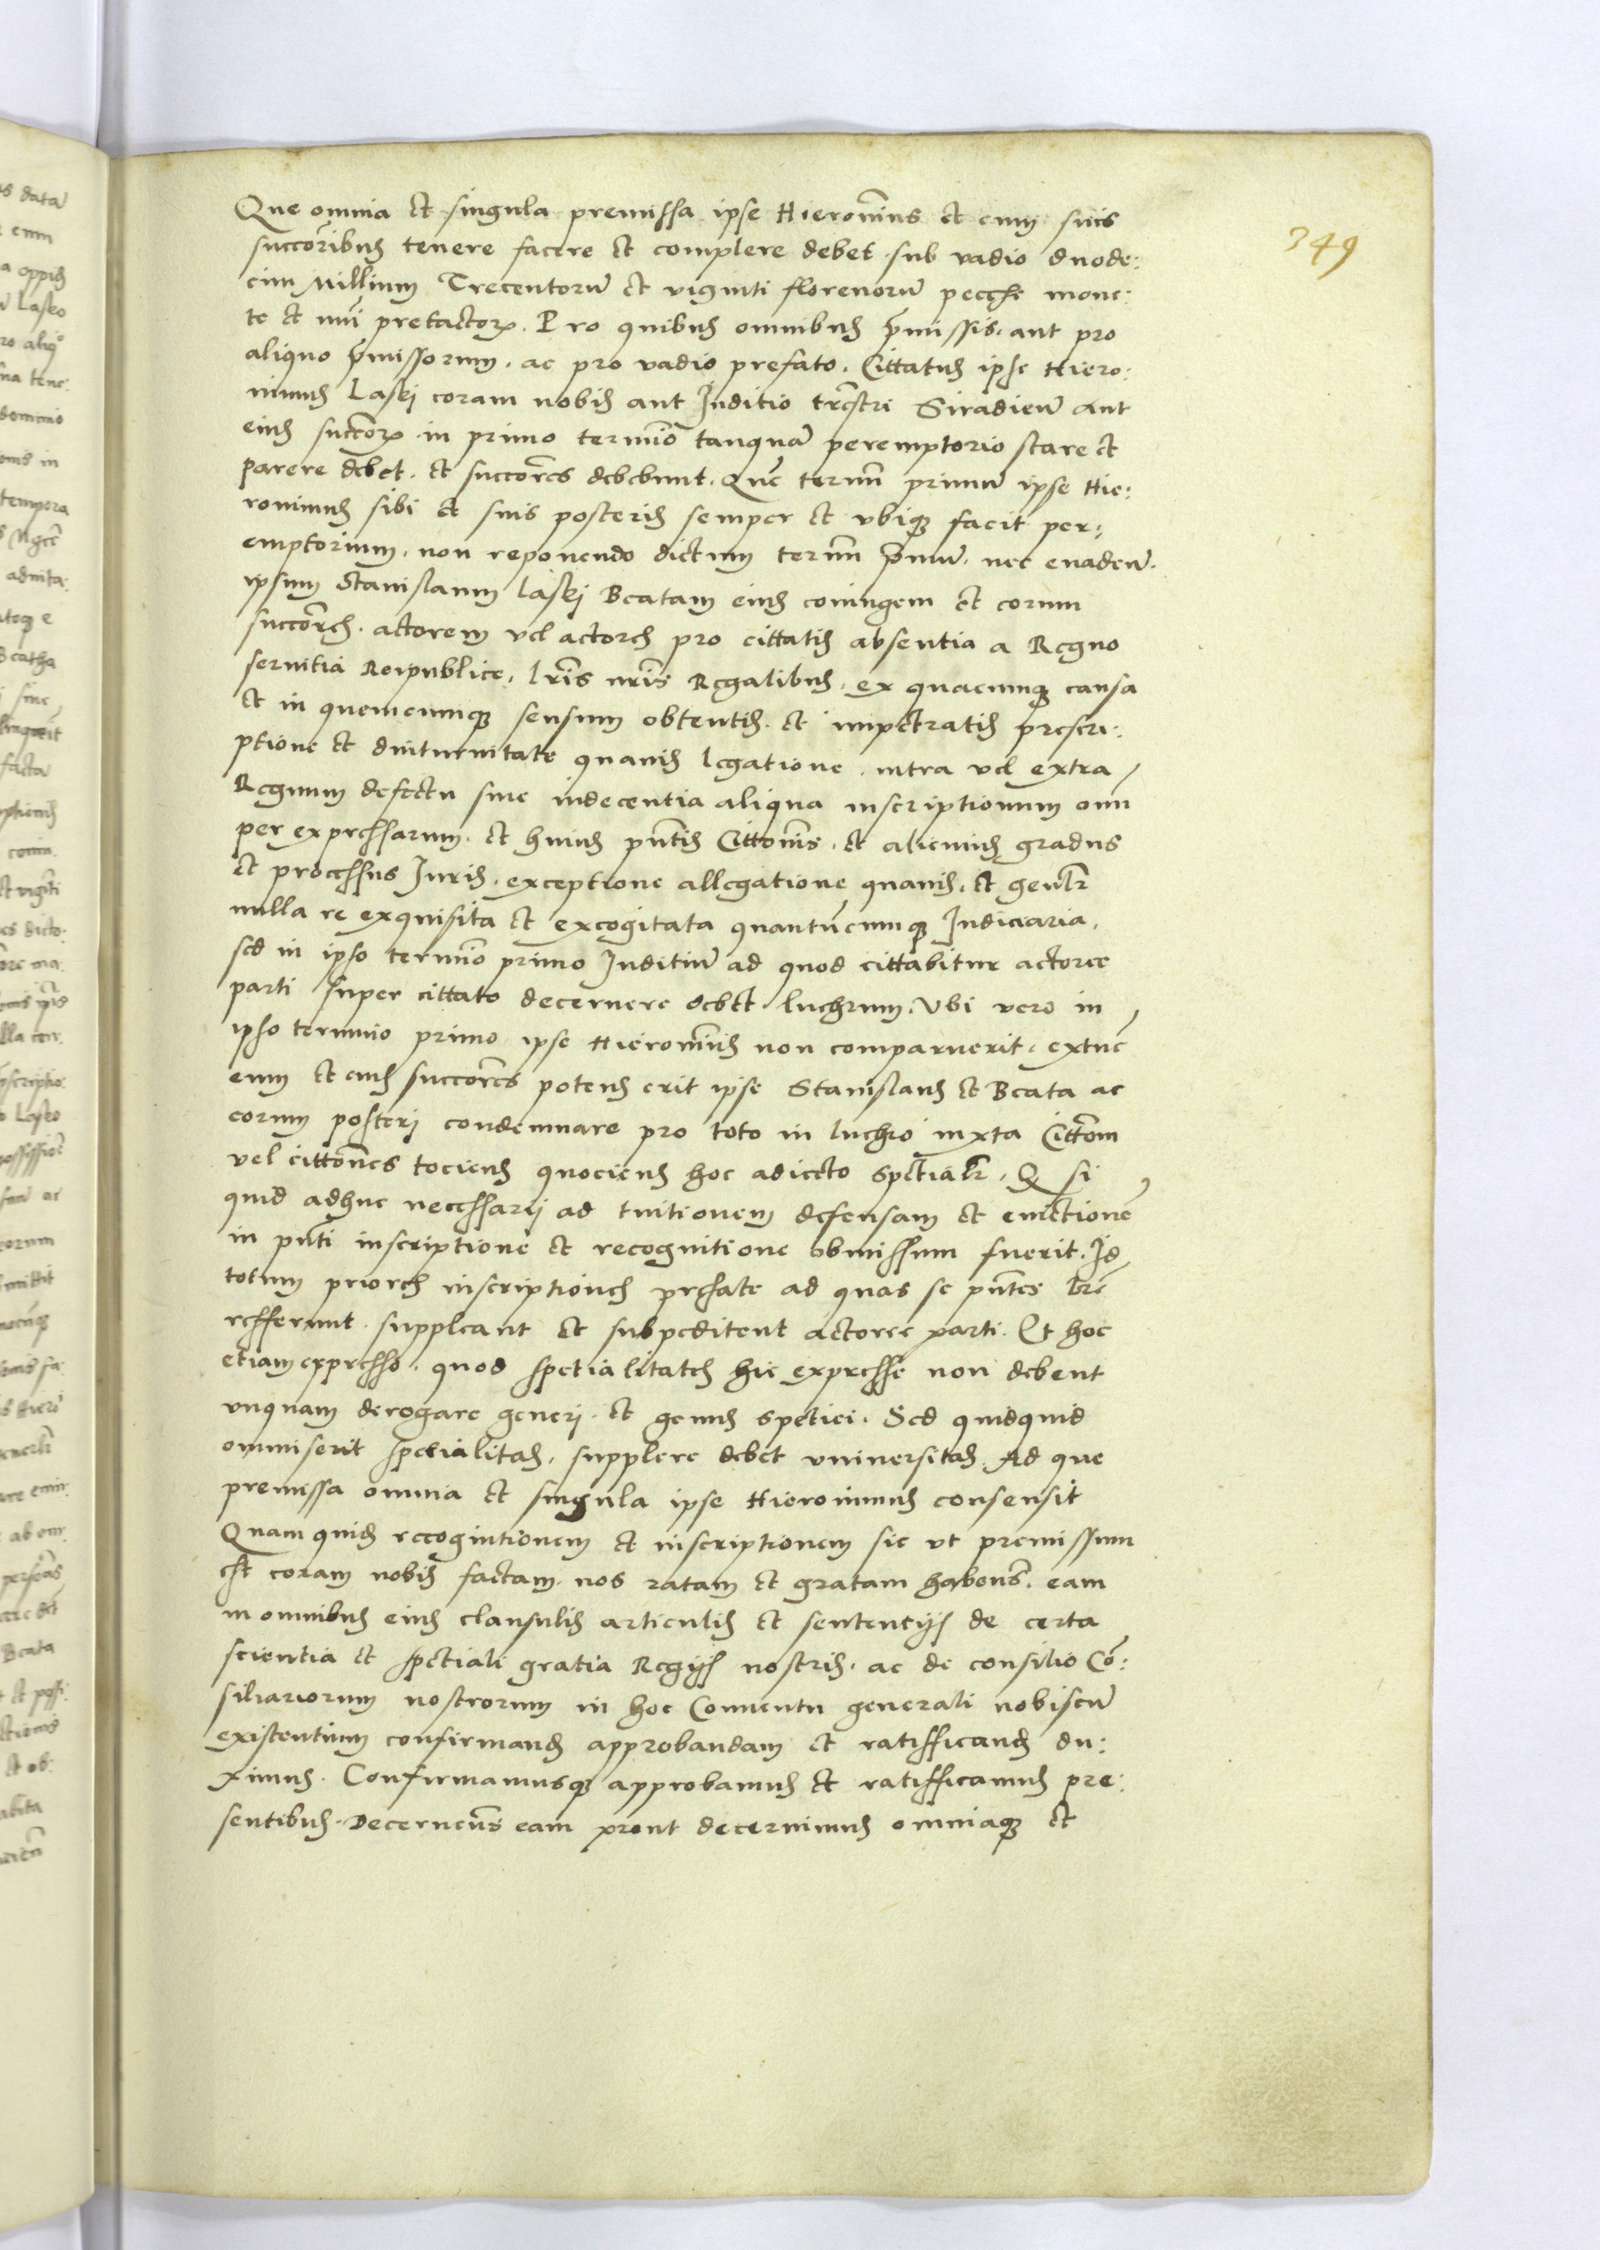 349
Que omnia et singula premissa ipse Hieronimus et cum suis
succoribus tenere facere et complere debet sub vadio duode:
cim Millium Trecentorum et viginti florenorum pecche mone:
te et nūi prefactorum. Pro quibus omnibus p̄missis aut pro
aliquo p̄missorum ac pro vadio prefato. Cittatus ipse Hiero:
nimus Laskj coram nobis aut Juditio trestri Siradieñ Aut
eius succorum in primo termino tanquā peremptorio stare et
parere debet et succores debebunt. Quē termñ primū ipse Hie:
ronimus sibi et suis posteris semper et vbique facit per:
emptorium, non reponendo dictum termñ p̄mum nec euadeñ.
ipsum Stanislaum Laskj Beatam eius coniugem et eorum
succores. actorem vel actores pro cittatis absentia a Regno
seruitia Reipublice, lris nris Regalibus, ex quacumque causa
et in quemcumque sensum obtentis et impetratis prescri:
ptione et diuturnitate quauis legatione. intra vel extra
Regnum defectu siue indecentia aliqua inscriptionum omñ
per expressarum et huius pntis Cittonis et alicuius gradus
et processus Juris, exceptione allegatione quauis, et genlr
nulla re exquisita et excogitata quantūcumque Judiciaria,
sed in ipso termino primo Juditiū ad quod cittabitur actoree
parti super cittato decernere debet luchrum. Vbi vero in
ipso termino primo ipse Hieronimus non comparuerit, extūc
eum et eius succores potens erit ipse Stanislaus et Beata ac
eorum posterj condemnare pro toto in luchro iuxta Cittom
vel cittones tociens quociens hoc adiecto spetialr. Q si
quid adhuc necessarij ad tuitionem defensam et euictionē
in pnti inscriptione et recognitione obmissum fuerit. Id
totum priores inscriptiones prefate ad quas se pntes lre
refferunt suppleant et subpeditent actoree parti. Et hoc
etiam expresso. quod spetialitates hic expresse non debent
vnquam derogare generj et genus spetiei. Sed quidquid
ommiserit spetialitas, supplere debet vniuersitas. Ad que
premissa omnia et singula ipse Hieronimus consensit
Quam quidē recognitionem et inscriptionem sic vt premissum
est coram nobis factam, nos ratam et gratam habens. eam
in omnibus eius clausulis articulis et sentencijs de certa
scientia et spetiali gratia Regijs nostris, ac de consilio Cō:
siliariorum nostrorum in hoc Conuentu generali nobiscū
existentium confirmandam approbandam et ratifficandam du:
ximus. Confirmamusque approbamus et ratifficamus pre:
sentibus. Decernens eam prout decernimus omniaque et